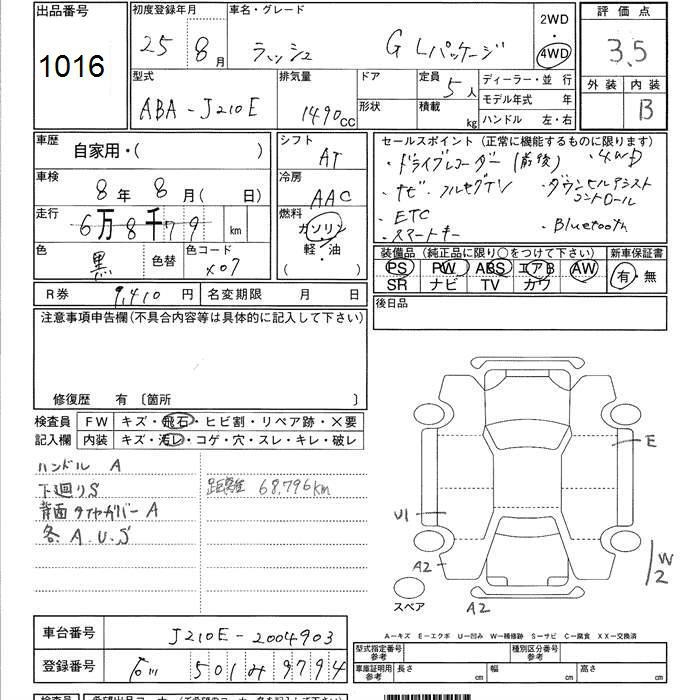 出品番号
1016
初度登録年月
25年 8月
車名・グレード
ラッシュ G Lパッケージ
2WD
・
4WD
評価点
3.5
外装 内装
B
型式
ABA-J210E
排気量
1490cc
ドア
形状
定員 5人
積載 kg
ディーラー・並行
モデル年式 年
ハンドル 左・右
車歴
自家用・( )
車検
8年 8月( 日)
走行
6万8千79 km
色
黒
色替
色コード
X07
シフト
AT
冷房
AAC
燃料
ガソリン
軽・油
( )
セールスポイント (正常に機能するものに限ります)
・ドライブレコーダー (前後) ・4WD
・ナビ・フルセグTV ・ダウンヒルアシスト
コントロール
・ETC
・スマートキー ・Bluetooth
装備品 (純正品に限り○をつけて下さい)
PS PW ABS エアB AW
SR ナビ TV カワ
新車保証書
有・無
後日品
R券 9,410円
名変期限 月 日
注意事項申告欄(不具合内容等は具体的に記入して下さい)
修復歴 有〔箇所 〕
検査員
記入欄
FW キズ・飛石・ヒビ割・リペア跡・×要
内装 キズ・汚レ・コゲ・穴・スレ・キレ・破レ
ハンドル A
下廻りS
背面タイヤカバー A
各 A.U.S
距離 68,796km
E
U1
A2
W2
A2
スペア
車台番号 J210E-2004903
登録番号 石川 501 み 9794
A-キズ E-エクボ U-凹み W-補修跡 S-サビ C-腐食 XX-交換済
型式指定番号
参考
種別区分番号
参考
車庫証明用
参考
長さ cm
幅 cm
高さ cm